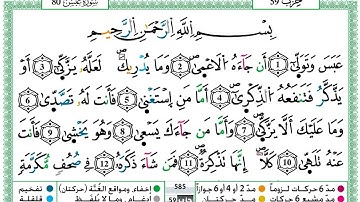 حزب 59
سورة عبس 80
بِسْمِ اللَّهِ الرَّحْمَٰنِ الرَّحِيمِ
عَبَسَ وَتَوَلَّىٰ ١ أَن جَاءَهُ الْأَعْمَىٰ ٢ وَمَا يُدْرِيكَ لَعَلَّهُ يَزَّكَّىٰ ٣ أَوْ
يَذَّكَّرُ فَتَنفَعَهُ الذِّكْرَىٰ ٤ أَمَّا مَنِ اسْتَغْنَىٰ ٥ فَأَنتَ لَهُ تَصَدَّىٰ ٦
وَمَا عَلَيْكَ أَلَّا يَزَّكَّىٰ ٧ وَأَمَّا مَن جَاءَكَ يَسْعَىٰ ٨ وَهُوَ يَخْشَىٰ ٩ فَأَنتَ
عَنْهُ تَلَهَّىٰ ١٠ كَلَّا إِنَّهَا تَذْكِرَةٌ ١١ فَمَن شَاءَ ذَكَرَهُ ١٢ فِي صُحُفٍ مُّكَرَّمَةٍ
مدّ 6 حركات لزوماً مدّ 2 أو 4 أو 6 جوازاً 585 إخفاء، ومواقع الغُنَّة (حركتان) تفخيم
مدّ مشبع 6 حركات مدّ حركتان حزب 59 إدغام، وما لا يُلفَظ قلقلة